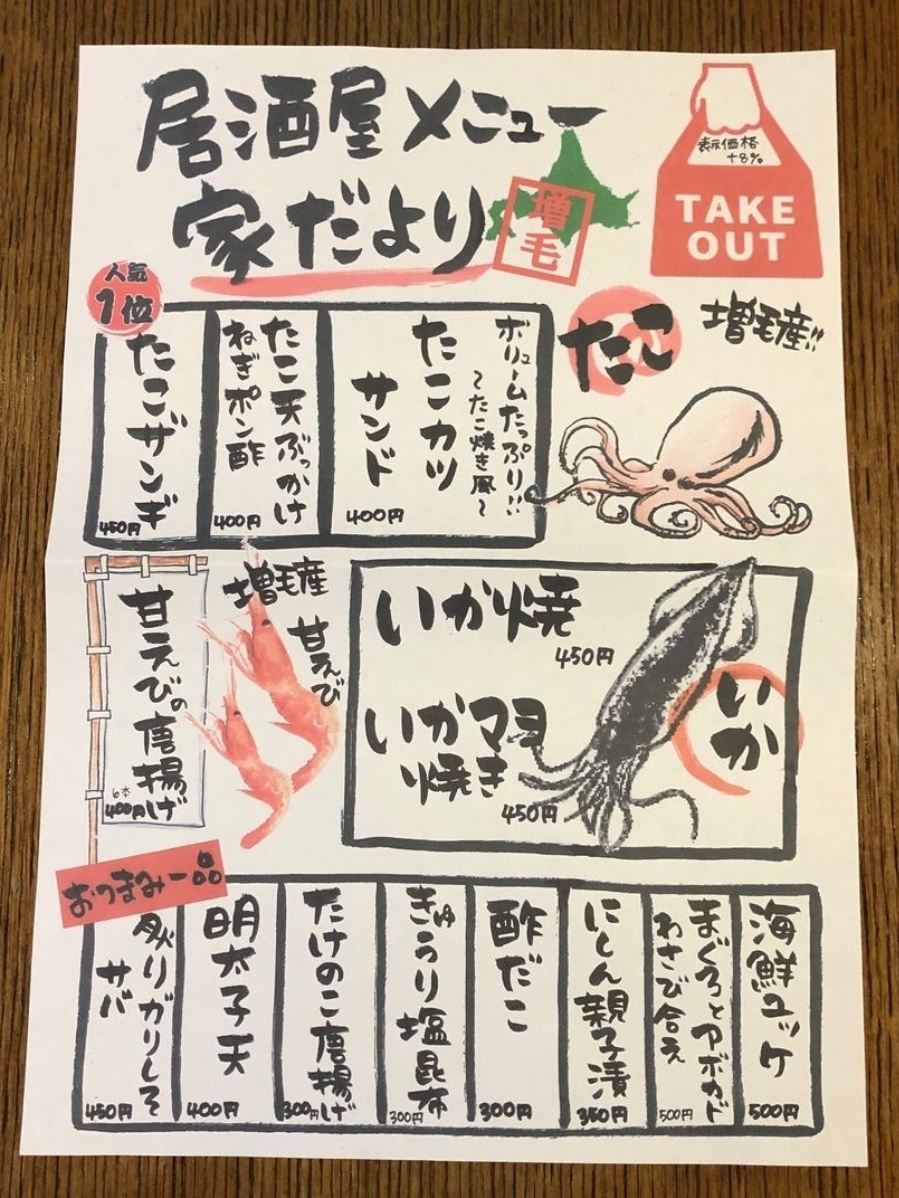 居酒屋メニュー
家だより
増毛
表示価格
+8%
TAKE
OUT
たこ
増毛産!!
ボリュームたっぷり!!
〜たこ焼き風〜
たこカツ
サンド
400円
たこ天ぶっかけ
ねぎポン酢
400円
人気
1位
たこザンギ
450円
甘えびの唐揚げ
6本
400円
増毛産
甘えび
いか焼
450円
いかマヨ
焼き
450円
いか
おつまみ一品
海鮮ユッケ
500円
まぐろとアボカド
わさび合え
500円
にしん親子漬
350円
酢だこ
300円
きゅうり塩昆布
300円
たけのこ唐揚げ
300円
明太子天
400円
炙りガリしそ
サバ
450円